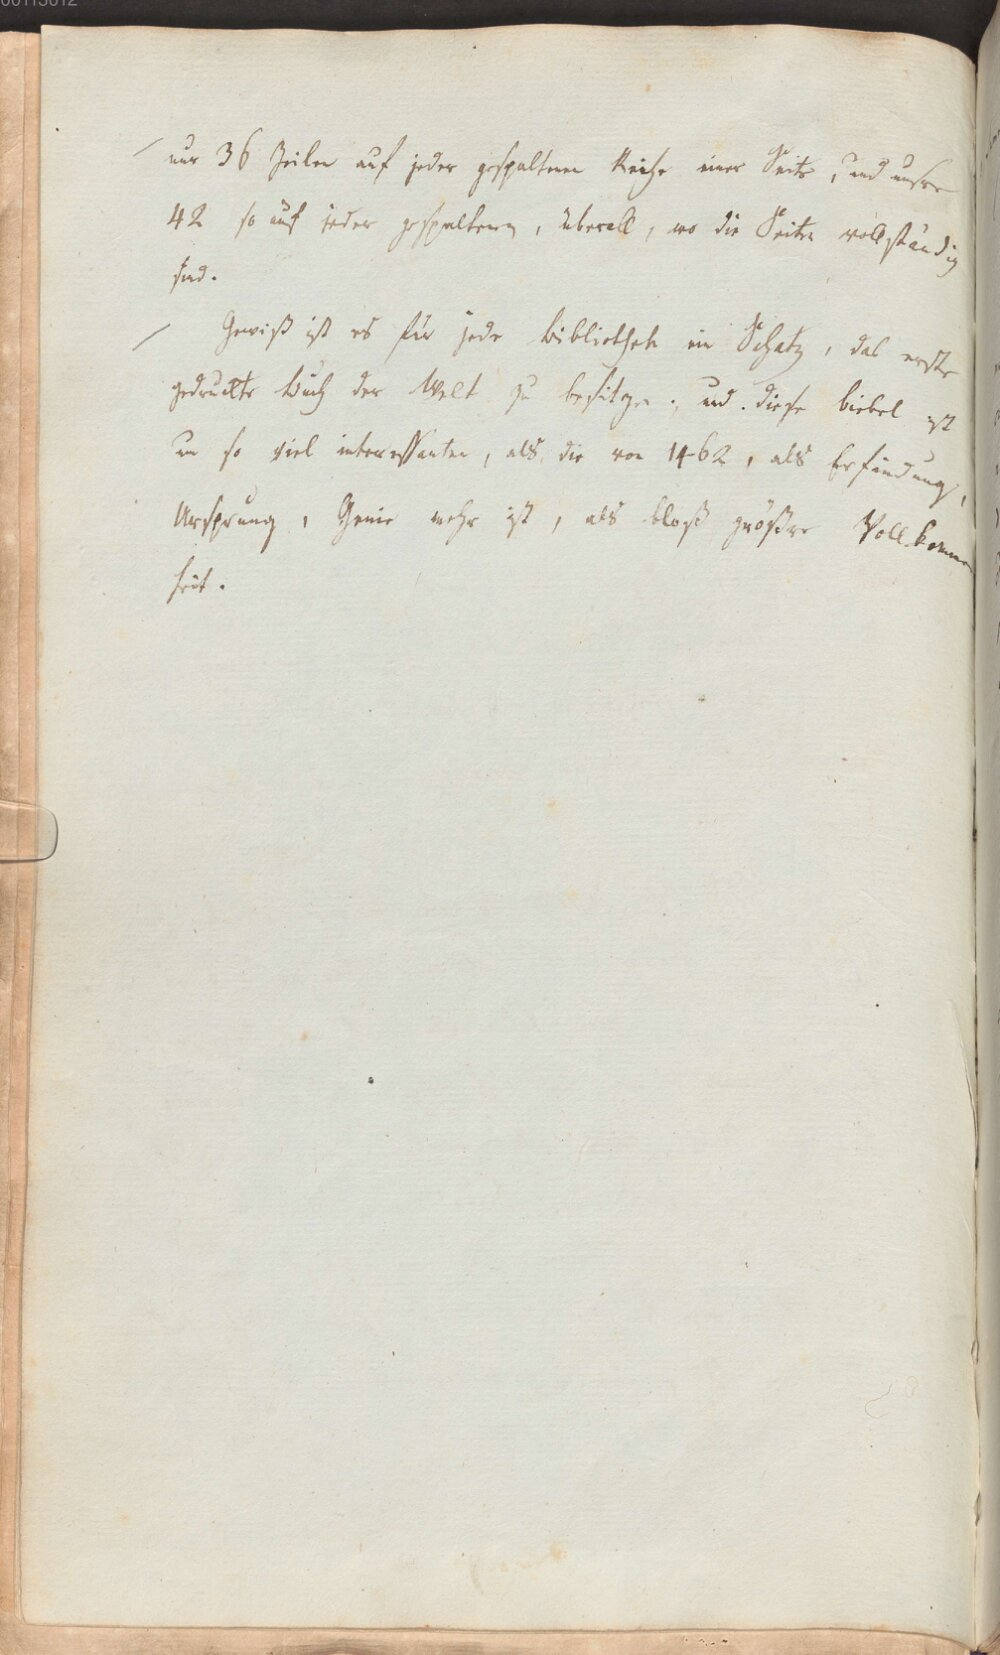 nur 36 Zeilen auf jeder gespaltenen Reihe einer Seite, und unsre
42 so auf jeder gespaltenen, überall, wo die Seiten vollständig
sind.
Gewiß ist es für jede Bibliothek ein Schatz, das erste
gedruckte Buch der Welt zu besitzen; und diese Biebel ist
um so viel interessanter, als die von 1462, als Erfindung,
Ursprung, Genie mehr ist, als bloß größre Vollkommen
heit.